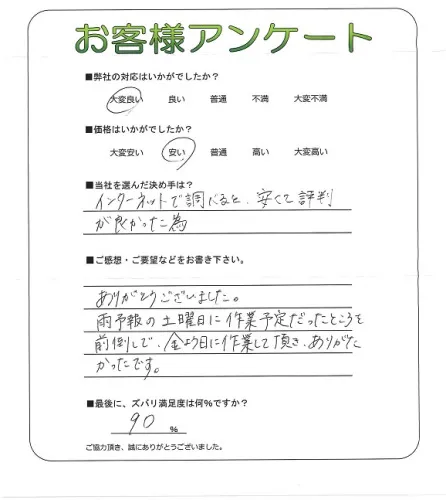 お客様アンケート
■弊社の対応はいかがでしたか？
大変良い 良い 普通 不満 大変不満
■価格はいかがでしたか？
大変安い 安い 普通 高い 大変高い
■当社を選んだ決め手は？
インターネットで調べると、安くて評判
が良かった為
■ご感想・ご要望などをお書き下さい。
ありがとうございました。
雨予報の土曜日に作業予定だったところを
前倒しで、金よう日に作業して頂き、ありがた
かったです。
■最後に、ズバリ満足度は何%ですか？
90 %
ご協力頂き、誠にありがとうございました。